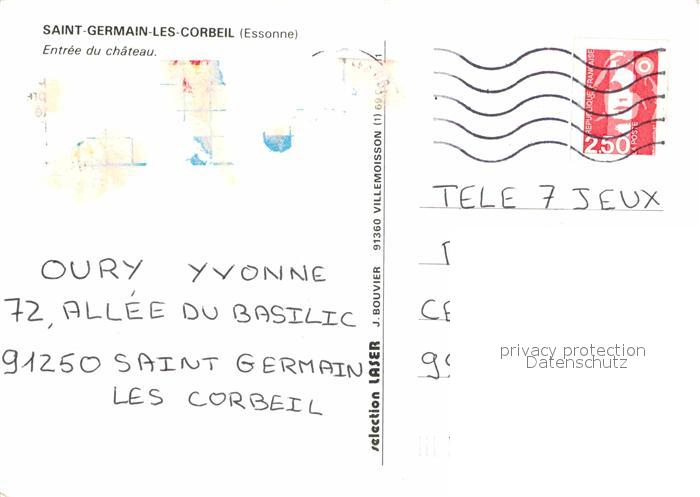 SAINT-GERMAIN-LES-CORBEIL (Essonne)
Entrée du château.
OURY YVONNE
72, ALLÉE DU BASILIC
91250 SAINT GERMAIN
LES CORBEIL
selection LASER J. BOUVIER 91360 VILLEMOISSON (1)
REPUBLIQUE FRANÇAISE
2,50
POSTE
TELE 7 JEUX
CE
privacy protection
Datenschutz